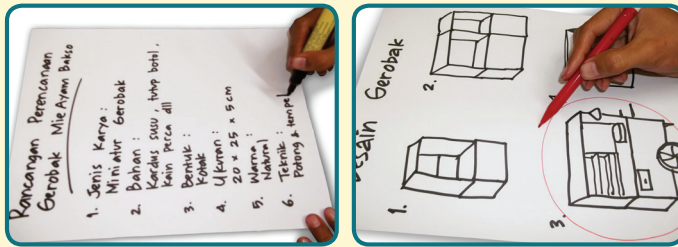 Rancangan Perencanaan
Gerobak Mie Ayam Bakso
1. Jenis Karya :
Miniatur Gerobak
2. Bahan :
Kardus susu, tutup botol,
Kain perca dll
3. Bentuk :
Kotak
4. Ukuran :
20 x 25 x 5 cm
5. Warna :
Natural
6. Teknik :
Potong & tempel
Desain Gerobak
1.
2.
3.